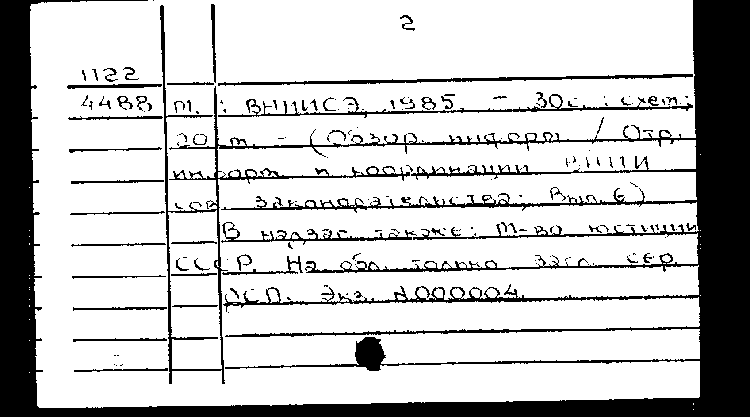 2
1122
4488 М. : ВНИИСЭ, 1985. - 30с. : схем;
20 см. - (Обзор. информ / Отд.
информ и координации ВНИИ
сов. законодательства; Вып. 6)
В надзаг также: М-во юстиции
СССР. На обл. только загл. сер.
ДСП. Экз. N000004.